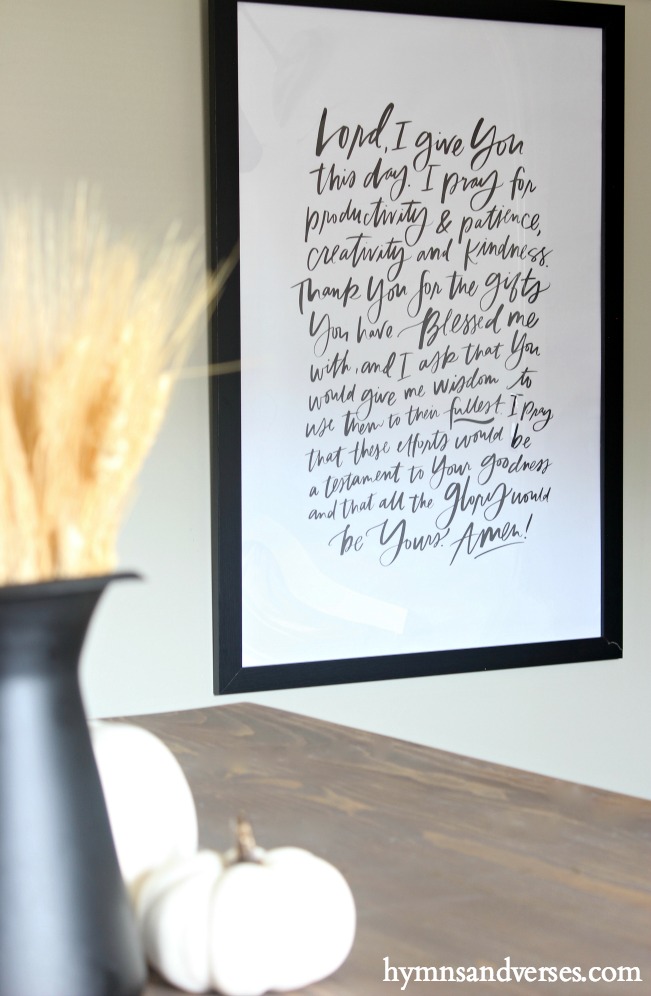 Lord, I give You
this day. I pray for
productivity & patience,
creativity and kindness.
Thank You for the gifts
You have Blessed me
with, and I ask that You
would give me wisdom to
use them to their fullest. I pray
that these efforts would be
a testament to Your goodness
and that all the Glory would
be Yours. Amen!
hymnsandverses.com